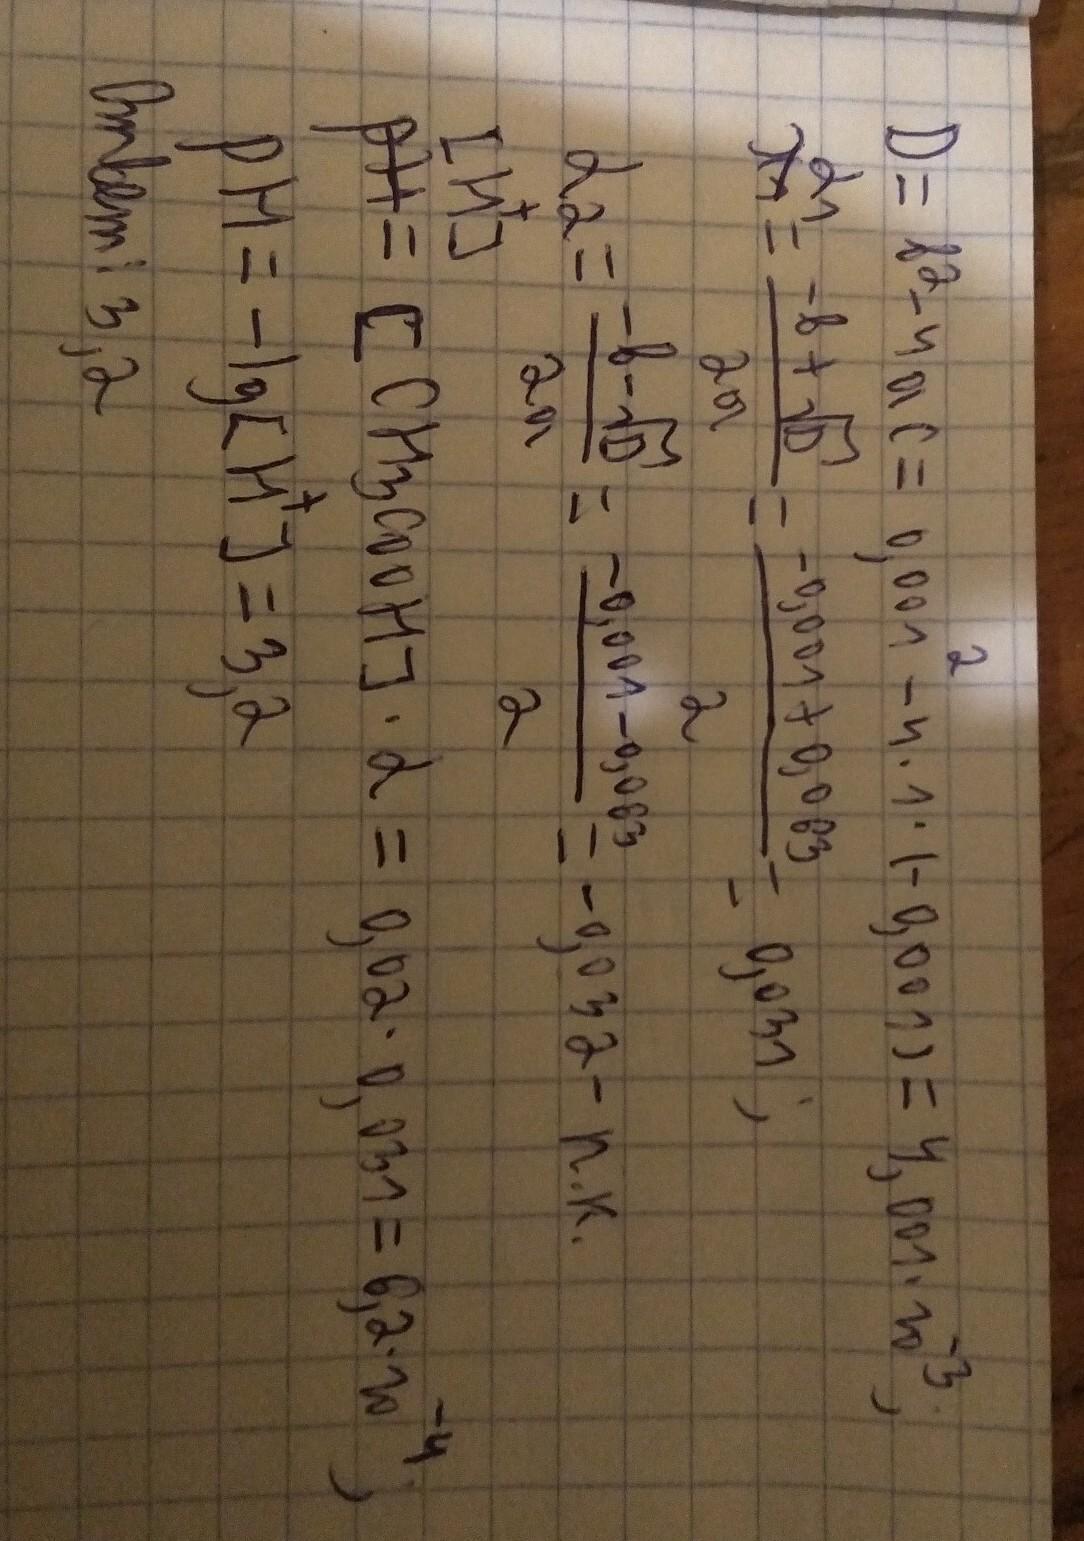 D = b² - 4ac = 0,001² - 4·1·(-0,001) = 4,001·10⁻³;
α1 = (-b + √D)/2a = (-0,001 + 0,063)/2 = 0,031;
α2 = (-b - √D)/2a = (-0,001 - 0,063)/2 = -0,032 - п.к.
[H⁺] = [CH3COOH]·α = 0,02·0,031 = 6,2·10⁻⁴;
pH = -lg[H⁺] = 3,2
Ответ: 3,2